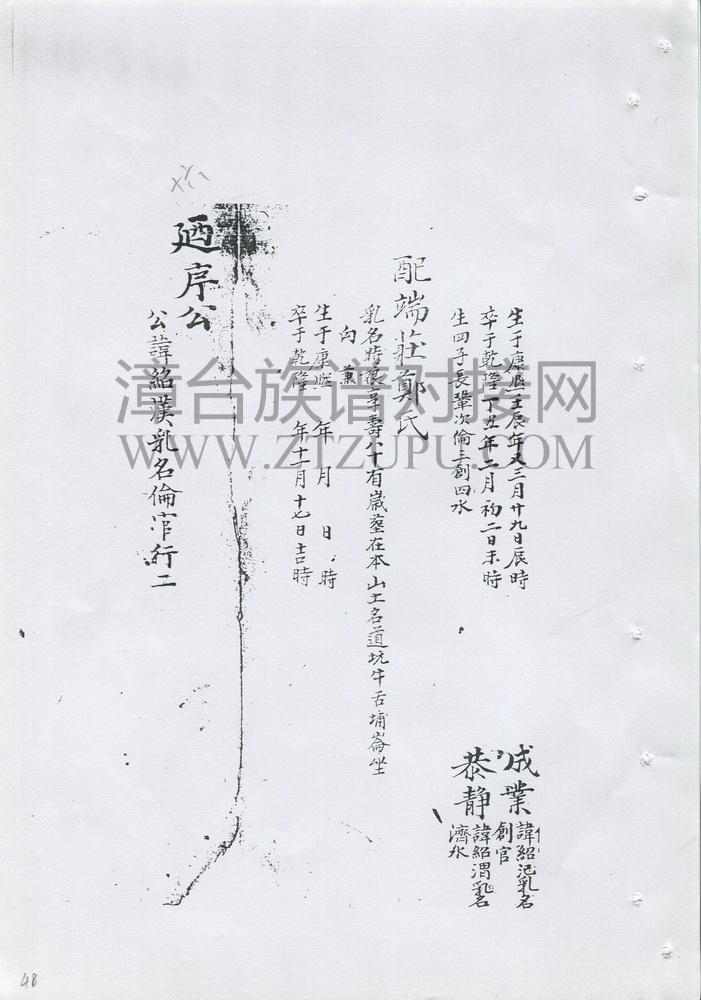 生于康熙壬辰年又三月廿九日辰時
卒于乾隆丁丑年二月初二日未時
生四子長鞏次倫三創四水
成業
諱紹汜乳名
創官
恭靜
諱紹渭乳名
濟水
配端莊鄭氏
乳名時娘享壽八十有歲塟在本山土名道坑牛舌埔崙坐
向 兼
生于康熙 年 月 日 時
卒于乾隆 年十一月十七日吉時
廼序公
公諱紹漢乳名倫官行二
漳台族谱对接网
WWW.ZTZUPU.COM
48